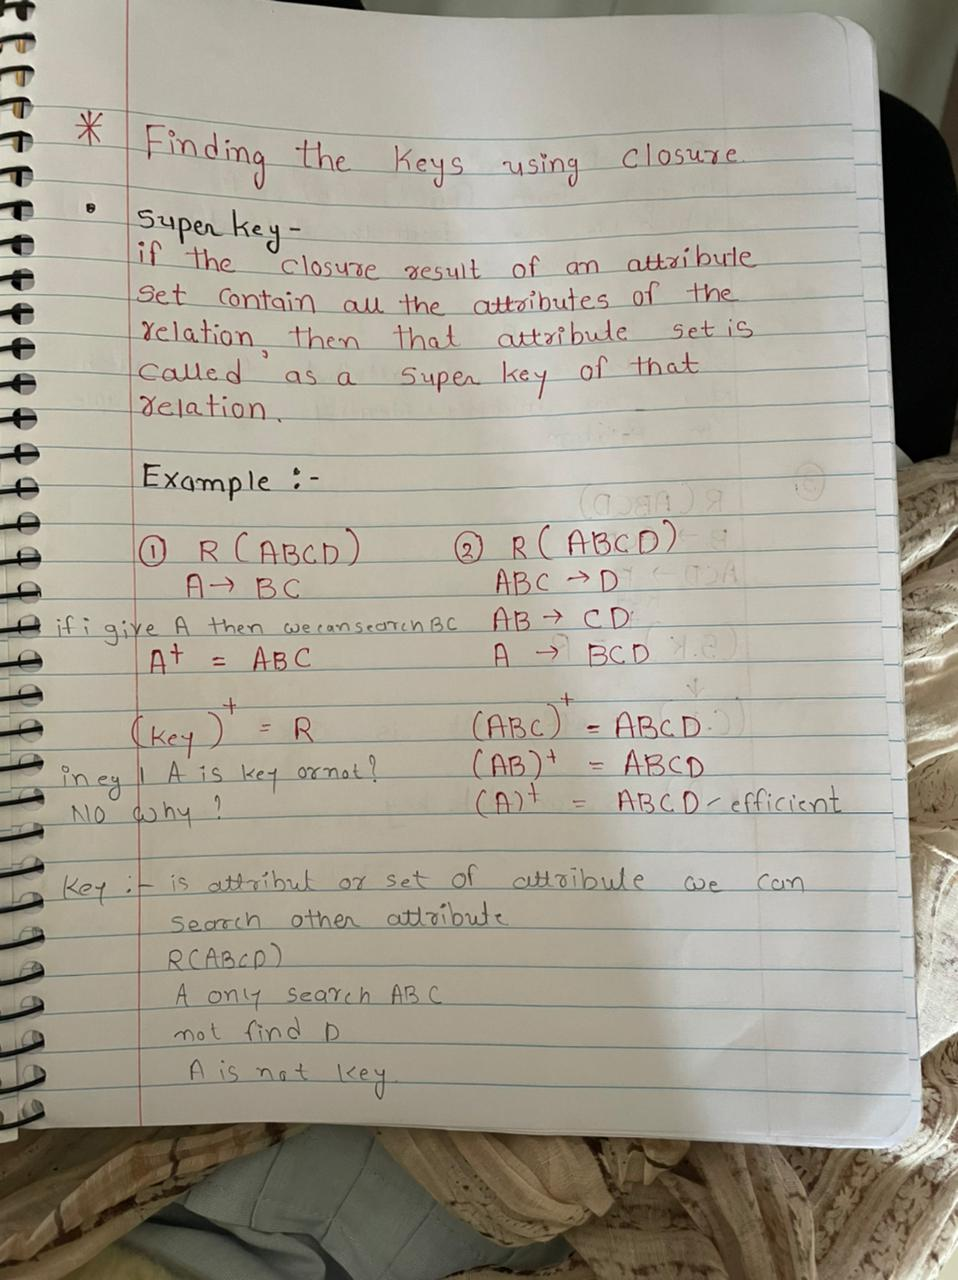 * Finding the Keys using Closure.
• Super key -
if the closure result of an attribute
set contain all the attributes of the
relation, then that attribute set is
called as a super key of that
relation.
Example :-
① R (ABCD)
A → BC
if i give A then we can search BC
A+ = ABC
(key)+ = R
in eg 1 A is key or not?
NO why?
② R (ABCD)
ABC → D
AB → CD
A → BCD
(ABC)+ = ABCD.
(AB)+ = ABCD
(A)+ = ABCD - efficient
Key :- is attribut or set of attribute we can
search other attribute
R(ABCD)
A only search ABC
not find D
A is not key.